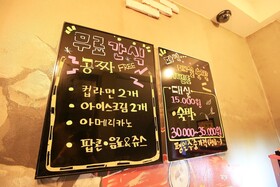 무료 간식
공짜 FREE
• 컵라면 2개
• 아이스크림 2개
• 아메리카노
• 팝콘 • 음료 & 쥬스
대실
15.000원
숙박
30.000 ~ 35.000원